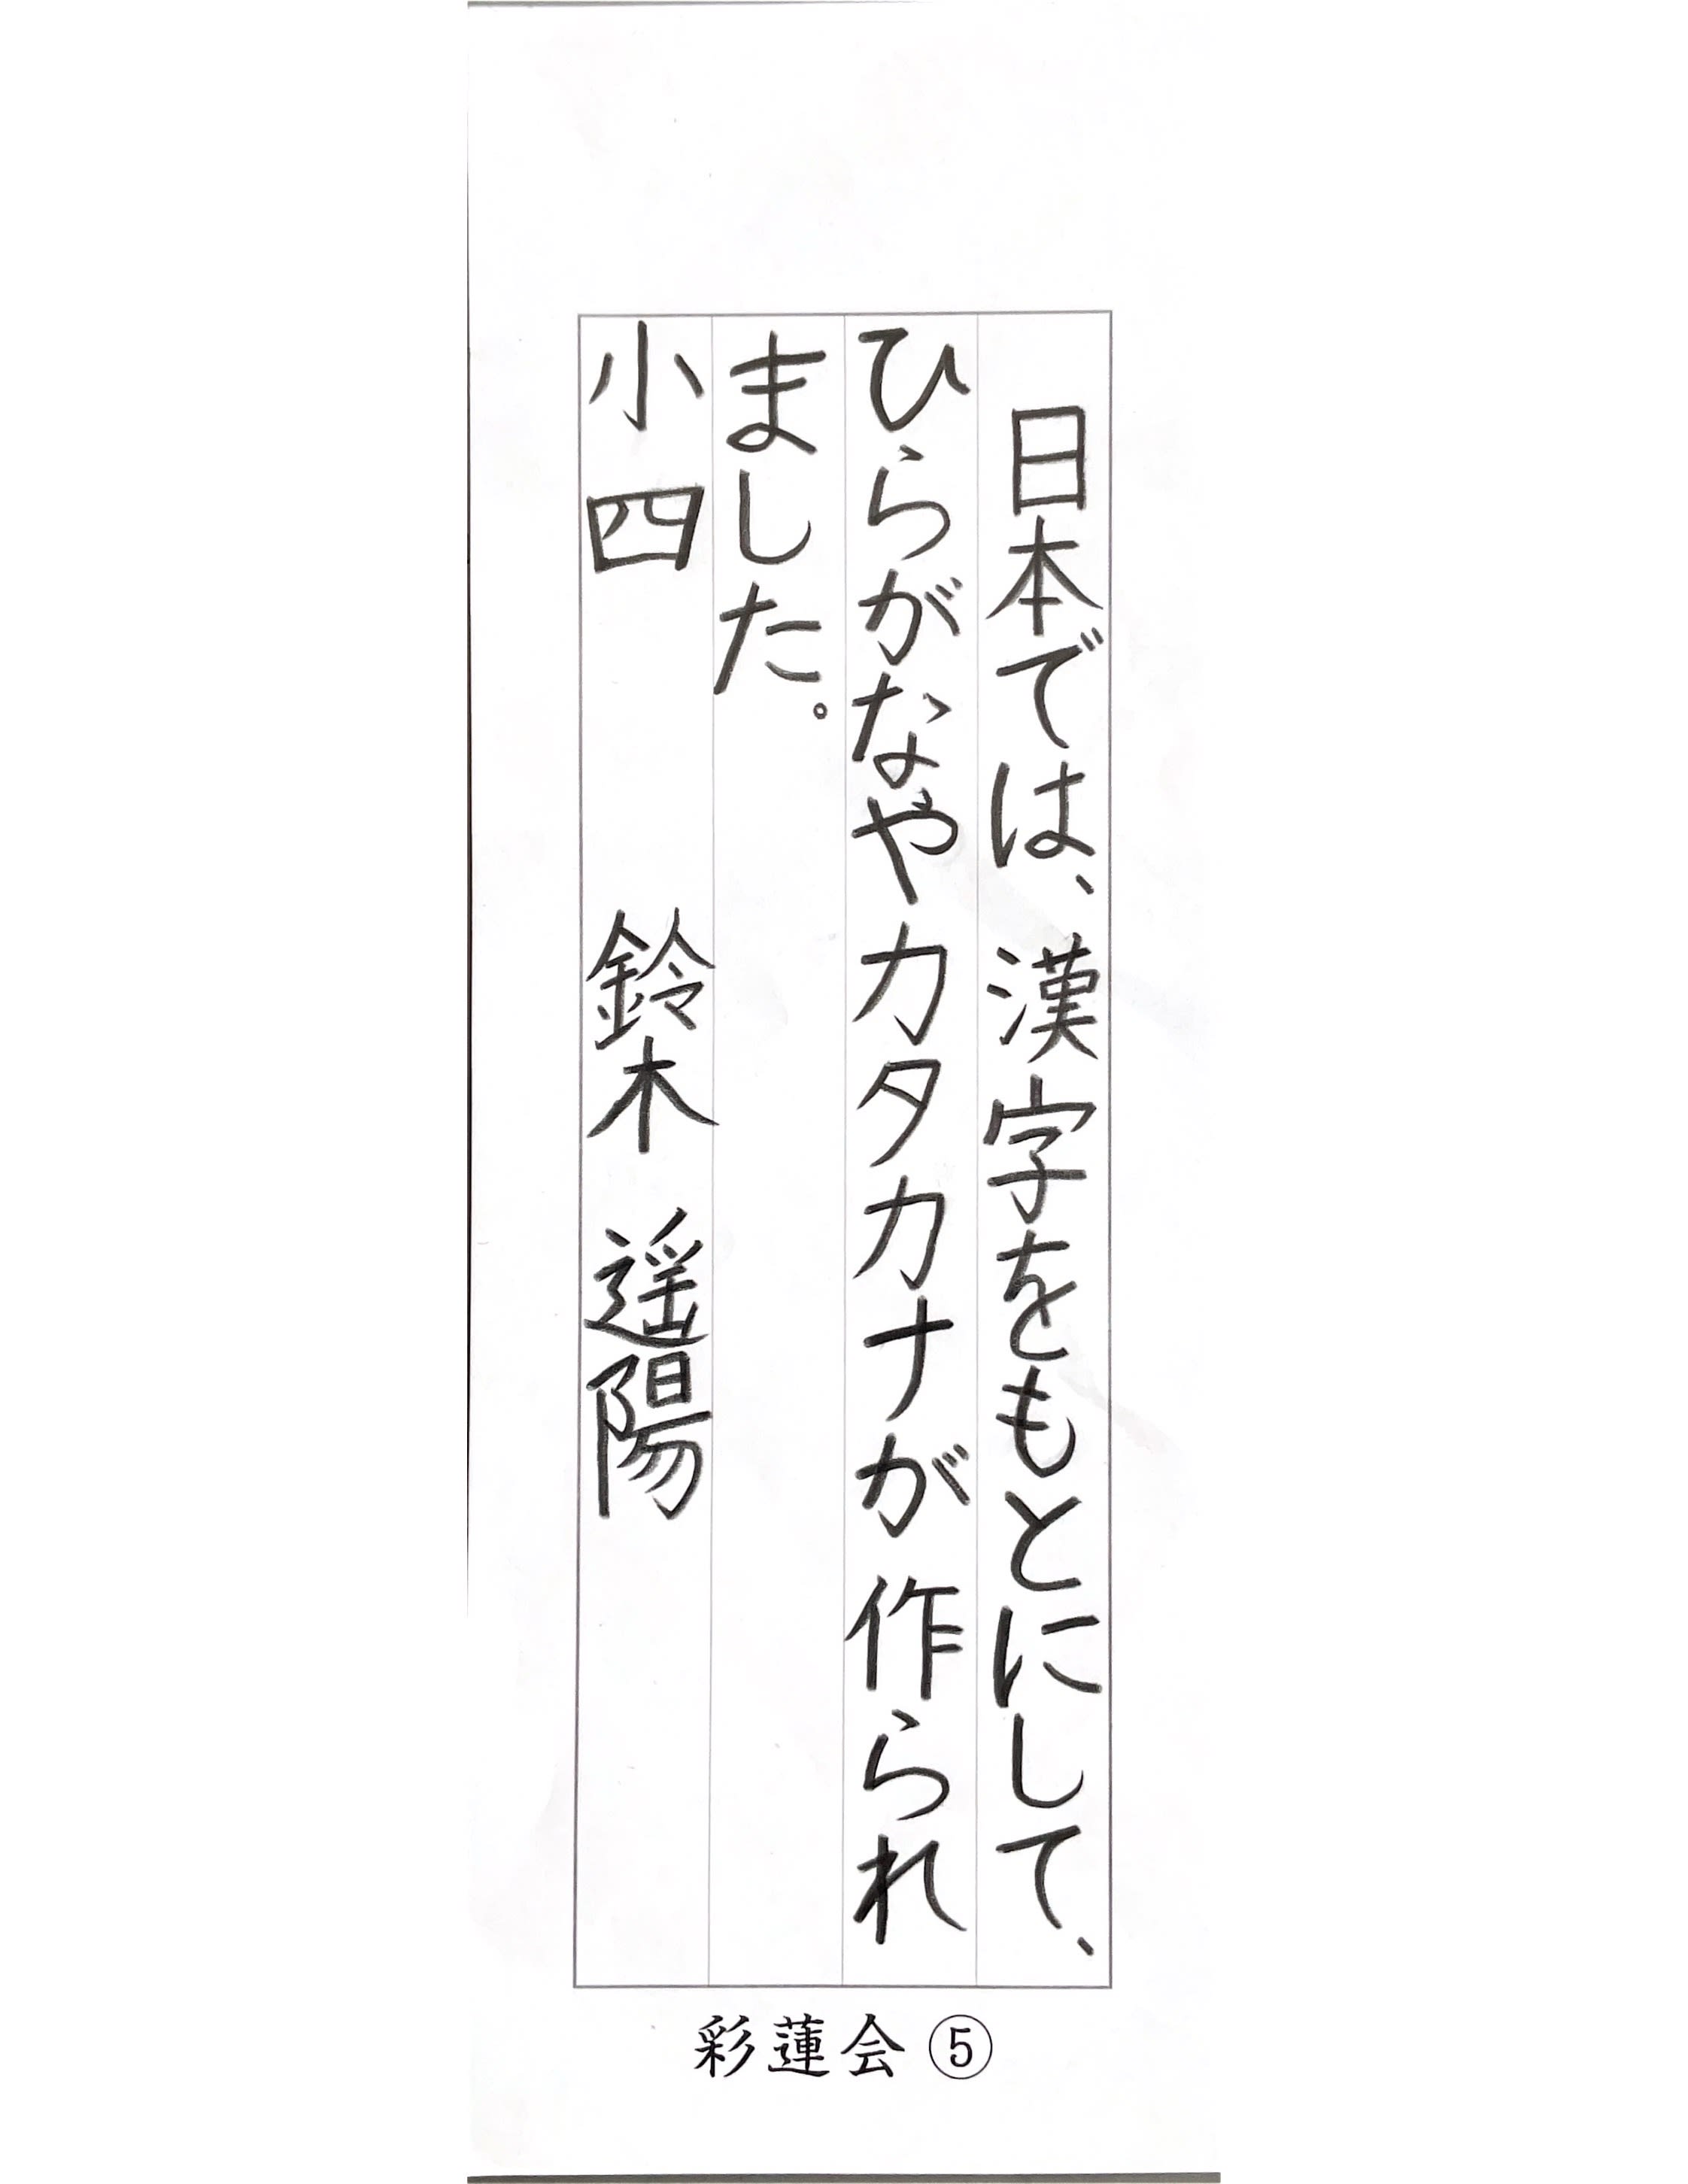 日本では、漢字をもとにして、
ひらがなやカタカナが作られ
ました。
小四 鈴木 遥陽
彩蓮会⑤